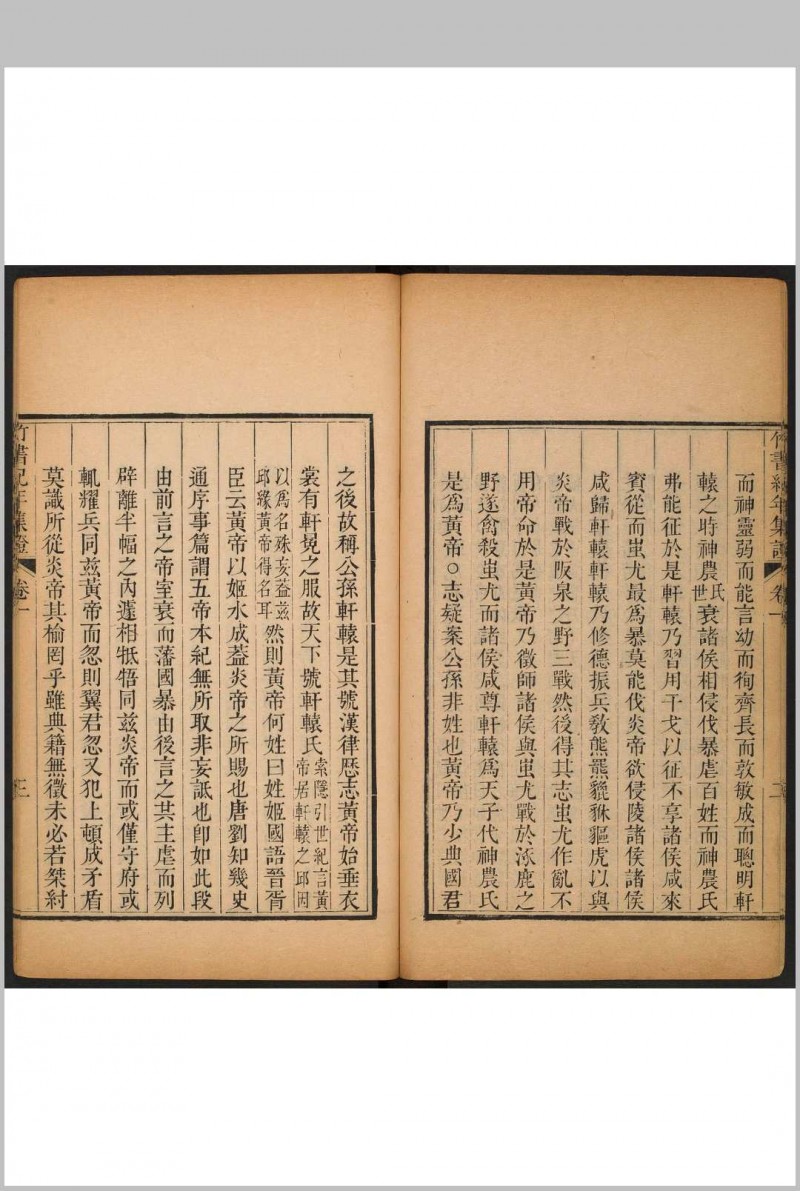 竹書紀年集證 卷一 二
而神靈弱而能言幼而徇齊長而敦敏成而聰明軒
轅之時神農氏世衰諸侯相侵伐暴虐百姓而神農氏
弗能征於是軒轅乃習用干戈以征不享諸侯咸來
賓從而蚩尤最爲暴莫能伐炎帝欲侵陵諸侯諸侯
咸歸軒轅軒轅乃修德振兵敎熊羆貔貅貙虎以與
炎帝戰於阪泉之野三戰然後得其志蚩尤作亂不
用帝命於是黃帝乃徵師諸侯與蚩尤戰於涿鹿之
野遂禽殺蚩尤而諸侯咸尊軒轅爲天子代神農氏
是爲黃帝○志疑案公孫非姓也黃帝乃少典國君
之後故稱公孫軒轅是其號漢律歴志黃帝始垂衣
裳有軒冕之服故天下號軒轅氏索隱引世紀言黃帝居軒轅之邱因
以爲名殊妄蓋兹邱緣黃帝得名耳然則黃帝何姓曰姓姬國語晉胥
臣云黃帝以姬水成蓋炎帝之所賜也唐劉知幾史
通序事篇謂五帝本紀無所取非妄詆也卽如此段
由前言之帝室衰而藩國暴由後言之共主虐而列
辟離半幅之內遽相牴牾同兹炎帝而或僅守府或
輒耀兵同兹黃帝而忽則翼君忽又犯上頓成矛盾
莫識所從炎帝其榆罔乎雖典籍無徵未必若桀紂
竹書紀年集證 卷一 三